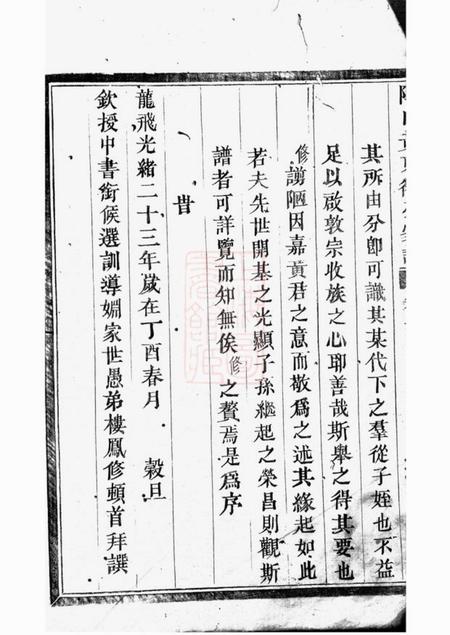 其所由分卽可識其某代下之羣從子姪也不益
足以啟敦宗收族之心耶善哉斯舉之得其要也
修謭陋因嘉黃君之意而敬爲之述其緣起如此
若夫先世開基之光顯子孫繼起之榮昌則觀斯
譜者可詳覽而知無俟修之贅焉是爲序
昔
龍飛光緒二十三年歲在丁酉春月 穀旦
欽授中書銜候選訓導姻家世愚弟樓鳳修頓首拜譔